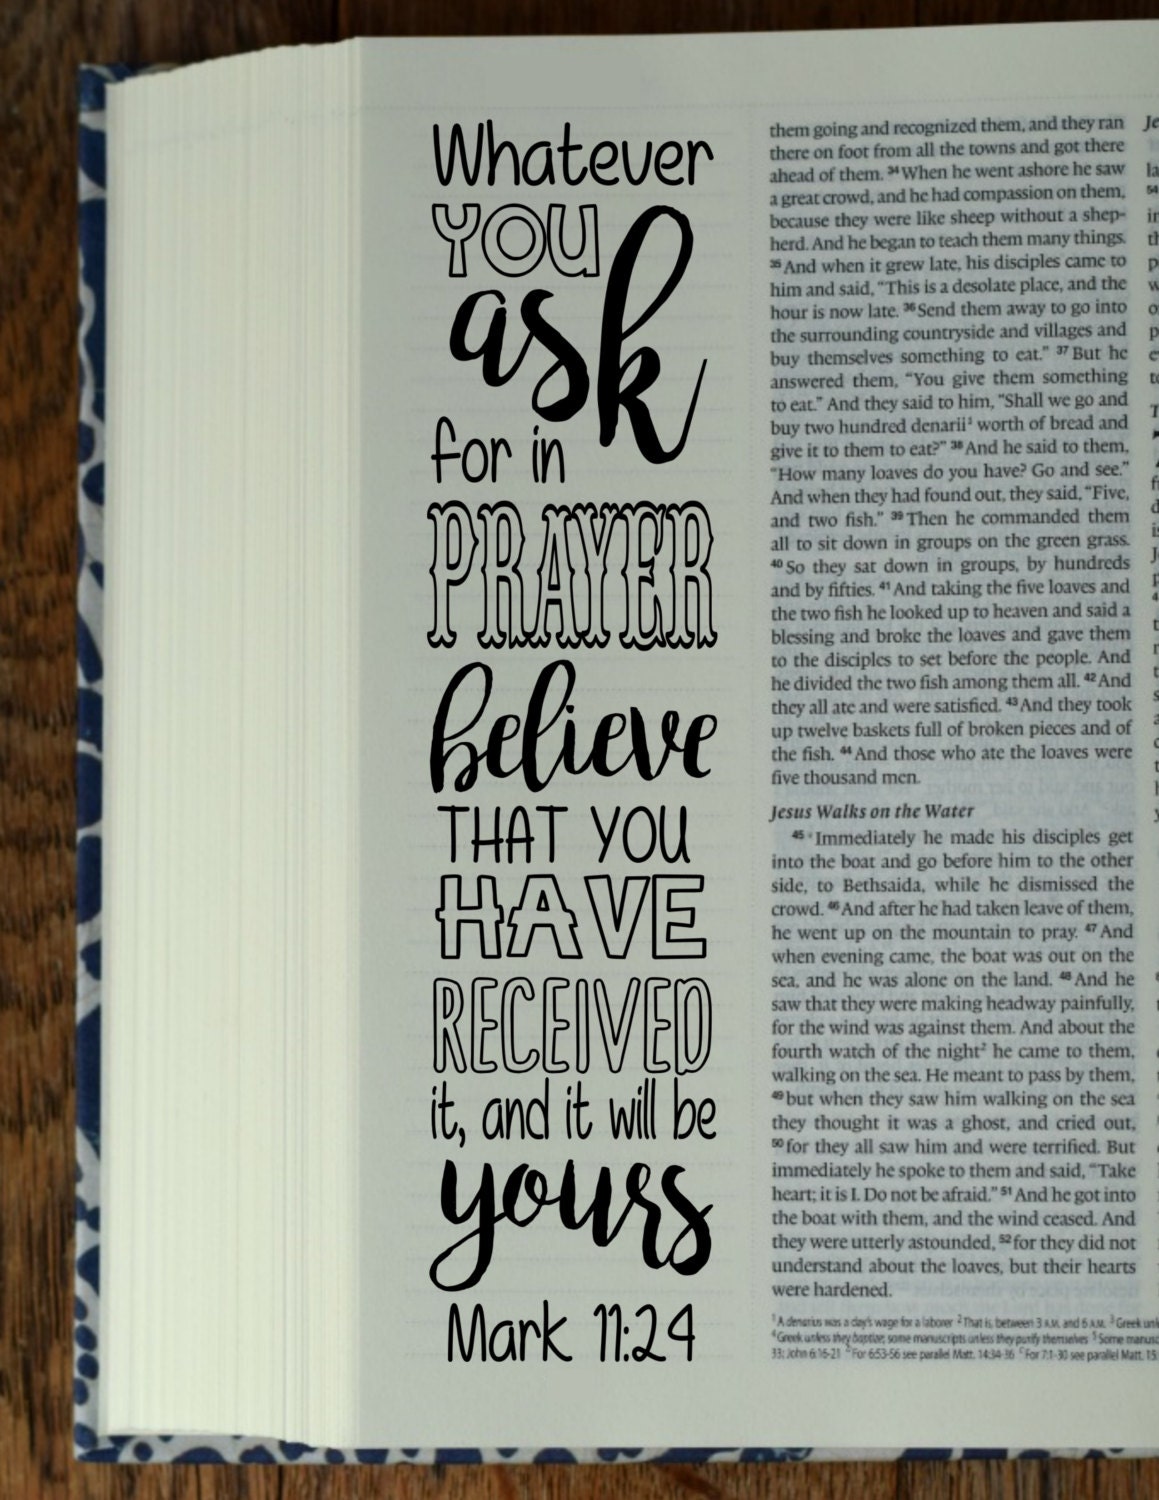 Whatever
YOU
ask
for in
PRAYER
believe
THAT YOU
HAVE
RECEIVED
it, and it will be
yours
Mark 11:24
them going and recognized them, and they ran
there on foot from all the towns and got there
ahead of them. 34 When he went ashore he saw
a great crowd, and he had compassion on them,
because they were like sheep without a shep-
herd. And he began to teach them many things.
35 And when it grew late, his disciples came to
him and said, “This is a desolate place, and the
hour is now late. 36 Send them away to go into
the surrounding countryside and villages and
buy themselves something to eat.” 37 But he
answered them, “You give them something
to eat.” And they said to him, “Shall we go and
buy two hundred denarii1 worth of bread and
give it to them to eat?” 38 And he said to them,
“How many loaves do you have? Go and see.”
And when they had found out, they said, “Five,
and two fish.” 39 Then he commanded them
all to sit down in groups on the green grass.
40 So they sat down in groups, by hundreds
and by fifties. 41 And taking the five loaves and
the two fish he looked up to heaven and said a
blessing and broke the loaves and gave them
to the disciples to set before the people. And
he divided the two fish among them all. 42 And
they all ate and were satisfied. 43 And they took
up twelve baskets full of broken pieces and of
the fish. 44 And those who ate the loaves were
five thousand men.
Jesus Walks on the Water
45 Immediately he made his disciples get
into the boat and go before him to the other
side, to Bethsaida, while he dismissed the
crowd. 46 And after he had taken leave of them,
he went up on the mountain to pray. 47 And
when evening came, the boat was out on the
sea, and he was alone on the land. 48 And he
saw that they were making headway painfully,
for the wind was against them. And about the
fourth watch of the night2 he came to them,
walking on the sea. He meant to pass by them,
49 but when they saw him walking on the sea
they thought it was a ghost, and cried out,
50 for they all saw him and were terrified. But
immediately he spoke to them and said, “Take
heart; it is I. Do not be afraid.” 51 And he got into
the boat with them, and the wind ceased. And
they were utterly astounded, 52 for they did not
understand about the loaves, but their hearts
were hardened.
1 A denarius was a day's wage for a laborer 2 That is, between 3 A.M. and 6 A.M. 3 Greek
4 Greek unless they baptize; some manuscripts unless they purify themselves 5 Some
33; John 6:16-21 For 6:53-56 see parallel Matt. 14:34-36 For 7:1-30 see parallel Matt. 15